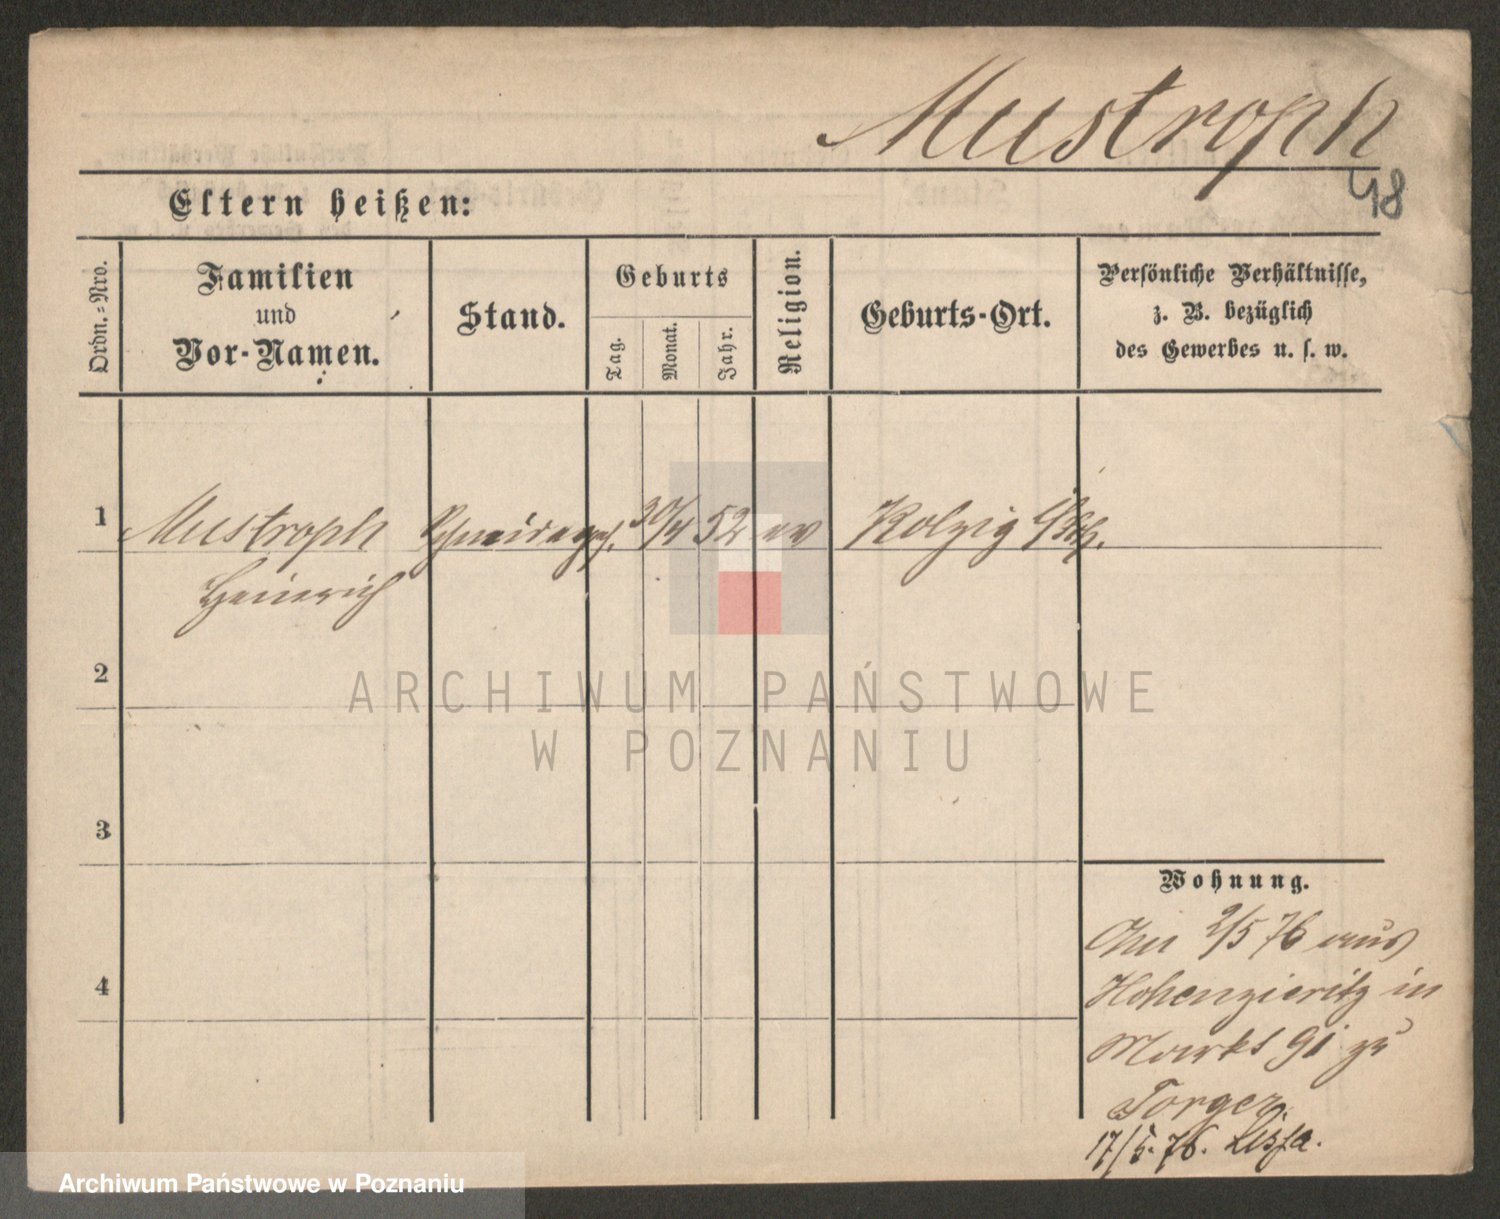 Mustroph
48
Eltern heißen:
Ordn.-Nro.
Familien
und
Vor-Namen.
Stand.
Geburts
Tag.
Monat.
Jahr.
Religion.
Geburts-Ort.
Persönliche Verhältnisse,
z. B. bezüglich
des Gewerbes u. s. w.
1 Mustroph Schneiderges. 30/4 52 ev Kolzig
Heinrich
2
ARCHIWUM PAŃSTWOWE
W POZNANIU
3
4
Wohnung.
2/5 76 aus
Hohenzieritz in
Markt 91 zu
Torger
17/5.76. Lissa.
Archiwum Państwowe w Poznaniu